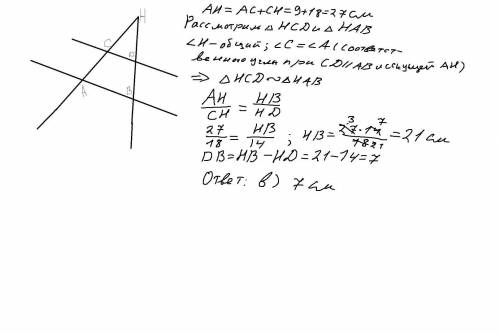 H
C
D
A
B
AH = AC + CH = 9 + 18 = 27 см
Рассмотрим △ HCD и △ HAB
∠H – общий; ∠C = ∠A (соответст-
венного углы при CD || AB и секущей AH)
⇒ △ HCD ~ △ HAB
AH/CH = HB/HD
27/18 = HB/14 ; HB = 27·14/18 = 21 см
DB = HB – HD = 21 – 14 = 7
Ответ: в) 7 см